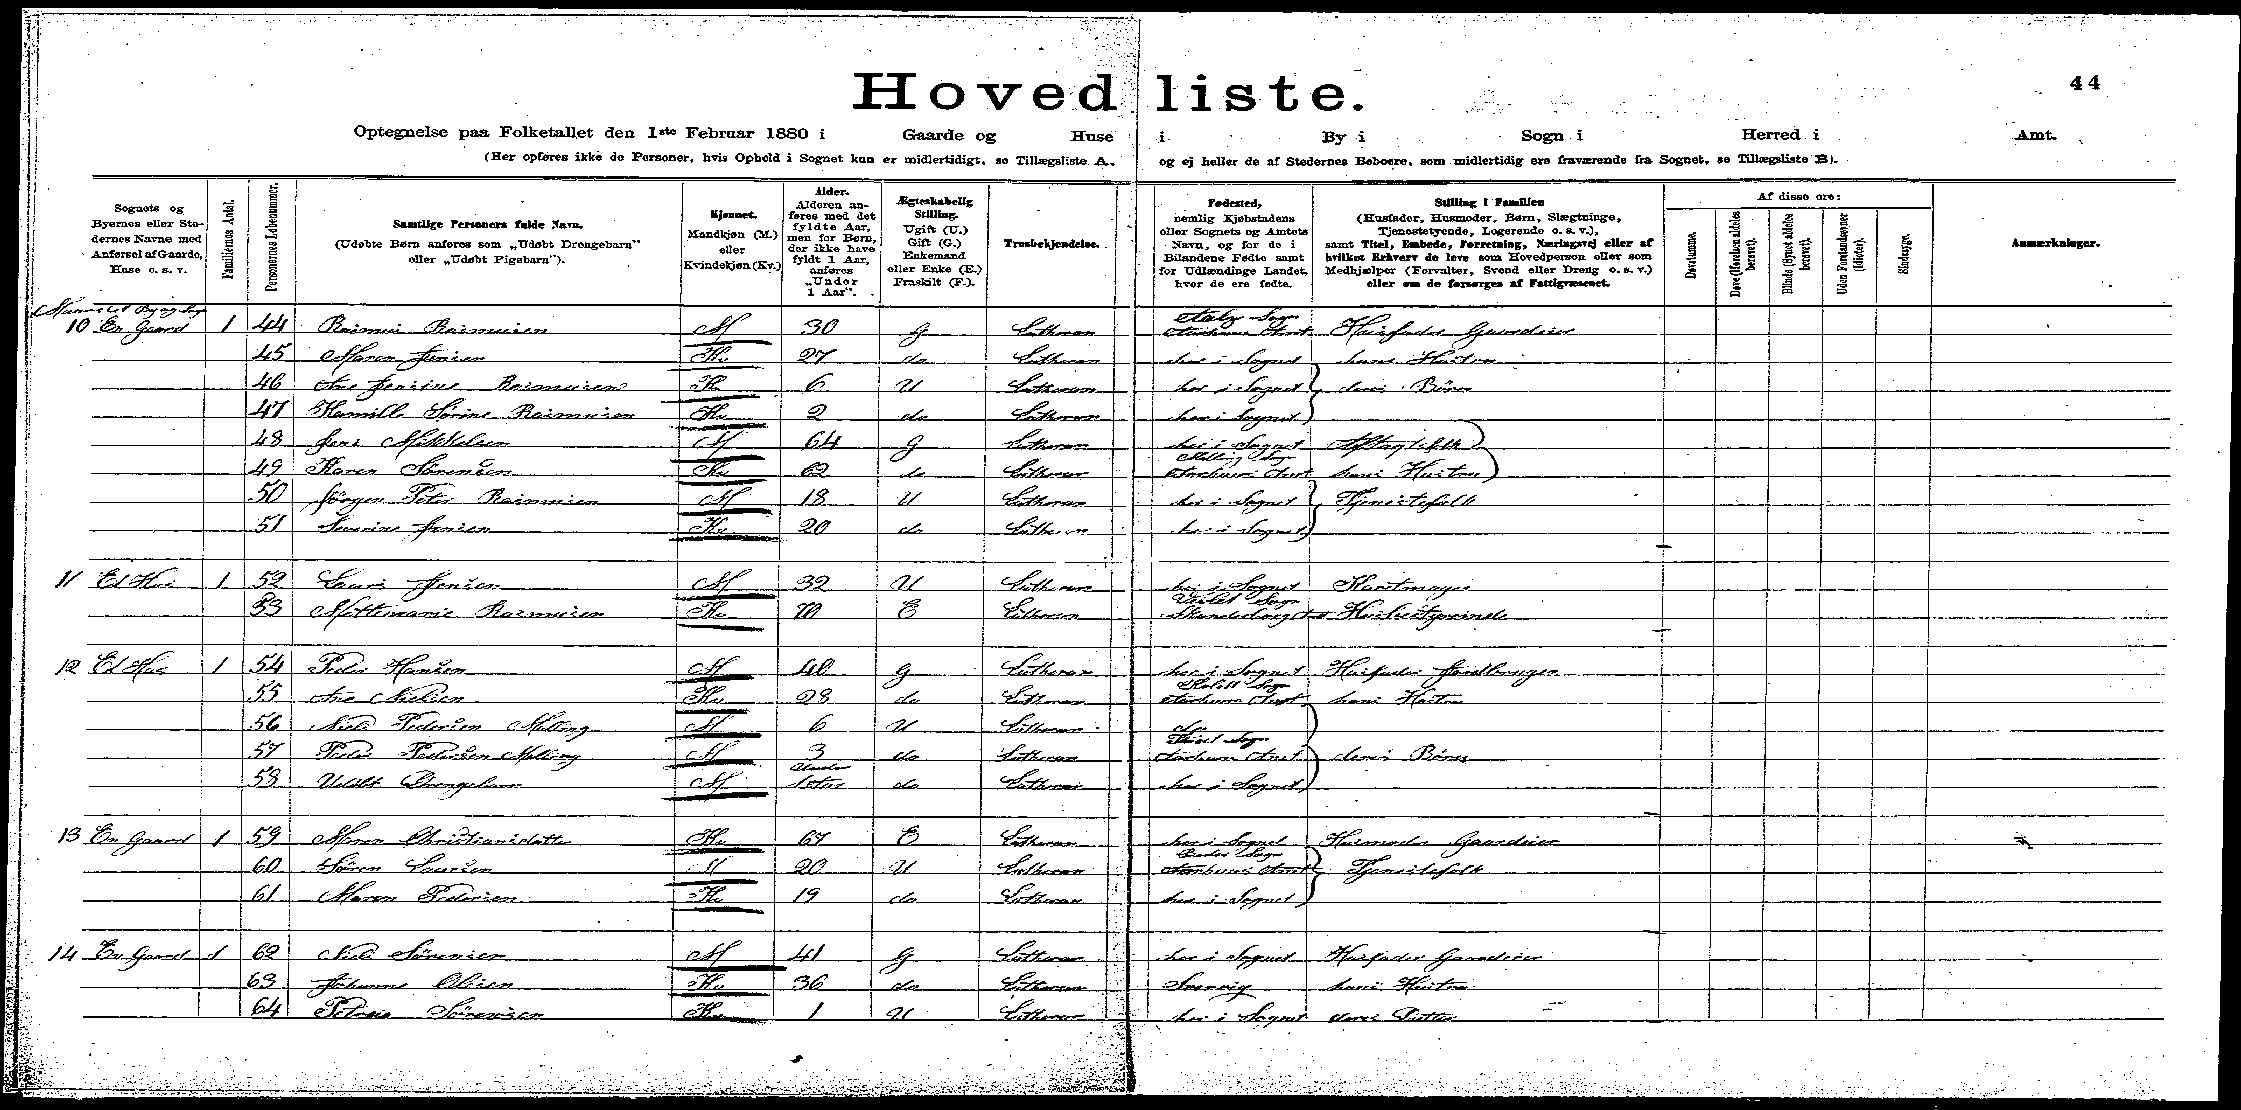 44
Hovedliste.
Optegnelse paa Folketallet den 1ste Februar 1880 i Gaarde og Huse i By i Sogn i Herred i Amt.
(Her opføres ikke de Personer, hvis Ophold i Sognet kun er midlertidigt, se Tillægsliste A., og ej heller de af Stedernes Beboere, som midlertidig ere fraværende fra Sognet, se Tillægsliste B).
Sognets og Byernes eller Stedernes Navne med Anførsel af Gaarde, Huse o. s. v.
Familiernes Antal.
Personernes Løbenummer.
Samtlige Personers fulde Navn.
(Udøbte Børn anføres som „Udøbt Drengebarn" eller „Udøbt Pigebarn").
Kjønnet.
Mandkjøn (M.) eller Kvindekjøn (Kv.)
Alder.
Alderen anføres med det fyldte Aar, men for Børn, der ikke have fyldt 1 Aar, anføres „Under 1 Aar".
Ægteskabelig Stilling.
Ugift (U.) Gift (G.) Enkemand eller Enke (E.) Fraskilt (F.).
Trosbekjendelse.
Fødested,
nemlig Kjøbstadens eller Sognets og Amtets Navn, og for de i Bilandene Fødte samt for Udlændinge Landet, hvor de ere fødte.
Stilling i Familien
(Husfader, Husmoder, Børn, Slægtninge, Tjenestetyende, Logerende o. s. v.),
samt Titel, Embede, Forretning, Næringsvej eller af hvilket Erhverv de leve som Hovedperson eller som Medhjælper (Forvalter, Svend eller Dreng o. s. v.) eller om de forsørges af Fattigvæsenet.
Af disse ere:
Døvstumme.
Døve (Hørelsen aldeles berøvet).
Blinde (Synet aldeles berøvet).
Uden Forstandsevner (Idioter).
Sindssyge.
Anmærkninger.
10 En Gaard 1 44 Rasmus Rasmussen M 30 G Lutheran Sogn Aarhuus Amt Huusfader Gaardeier
45 Maren Jensen Kv 27 do Lutheran her i Sognet hans Hustru
46 Ane Jensine Rasmussen Kv 6 U Lutheran her i Sognet deres Børn
47 Kamille Sørine Rasmussen Kv 2 do Lutheran her i Sognet
48 Jens Mikkelsen M 64 G Lutheran her i Sognet Aftægtsfolk
49 Karen Sørensen Kv 62 do Lutheran Sogn Aarhuus Amt hans Hustru
50 Jörgen Peter Rasmussen M 18 U Lutheran her i Sognet Tjenestefolk
51 Severine Jensen Kv 20 do Lutheran her i Sognet
11 Et Hus 1 52 Laurs Jensen M 32 U Lutheran her i Sognet
53 Mettemarie Rasmussen Kv 70 E Lutheran Sogn
12 Et Hus 1 54 Peder Hansen M 40 G Lutheran her i Sognet Huusfader Jordbruger
55 Ane Nielsen Kv 28 do Lutheran Sogn Aarhuus Amt hans Hustru
56 Niels Pedersen Malling M 6 U Lutheran
57 Peder Pedersen Malling M 3 do Lutheran Sogn Aarhuus Amt deres Børn
58 Udöbt Drengebarn M Under 1 Aar do Lutheran her i Sognet
13 En Gaard 1 59 Maren Christiansdatter Kv 67 E Lutheran her i Sognet Huusmoder Gaardeier
60 Sören Laursen M 20 U Lutheran Sogn Aarhuus Amt Tjenestefolk
61 Maren Pedersen Kv 19 do Lutheran her i Sognet
14 En Gaard 1 62 Niels Sørensen M 41 G Lutheran her i Sognet Huusfader Gaardeier
63 Johanne Olesen Kv 36 do Lutheran hans Hustru
64 Sørensen Kv 1 U Lutheran her i Sognet deres Datter